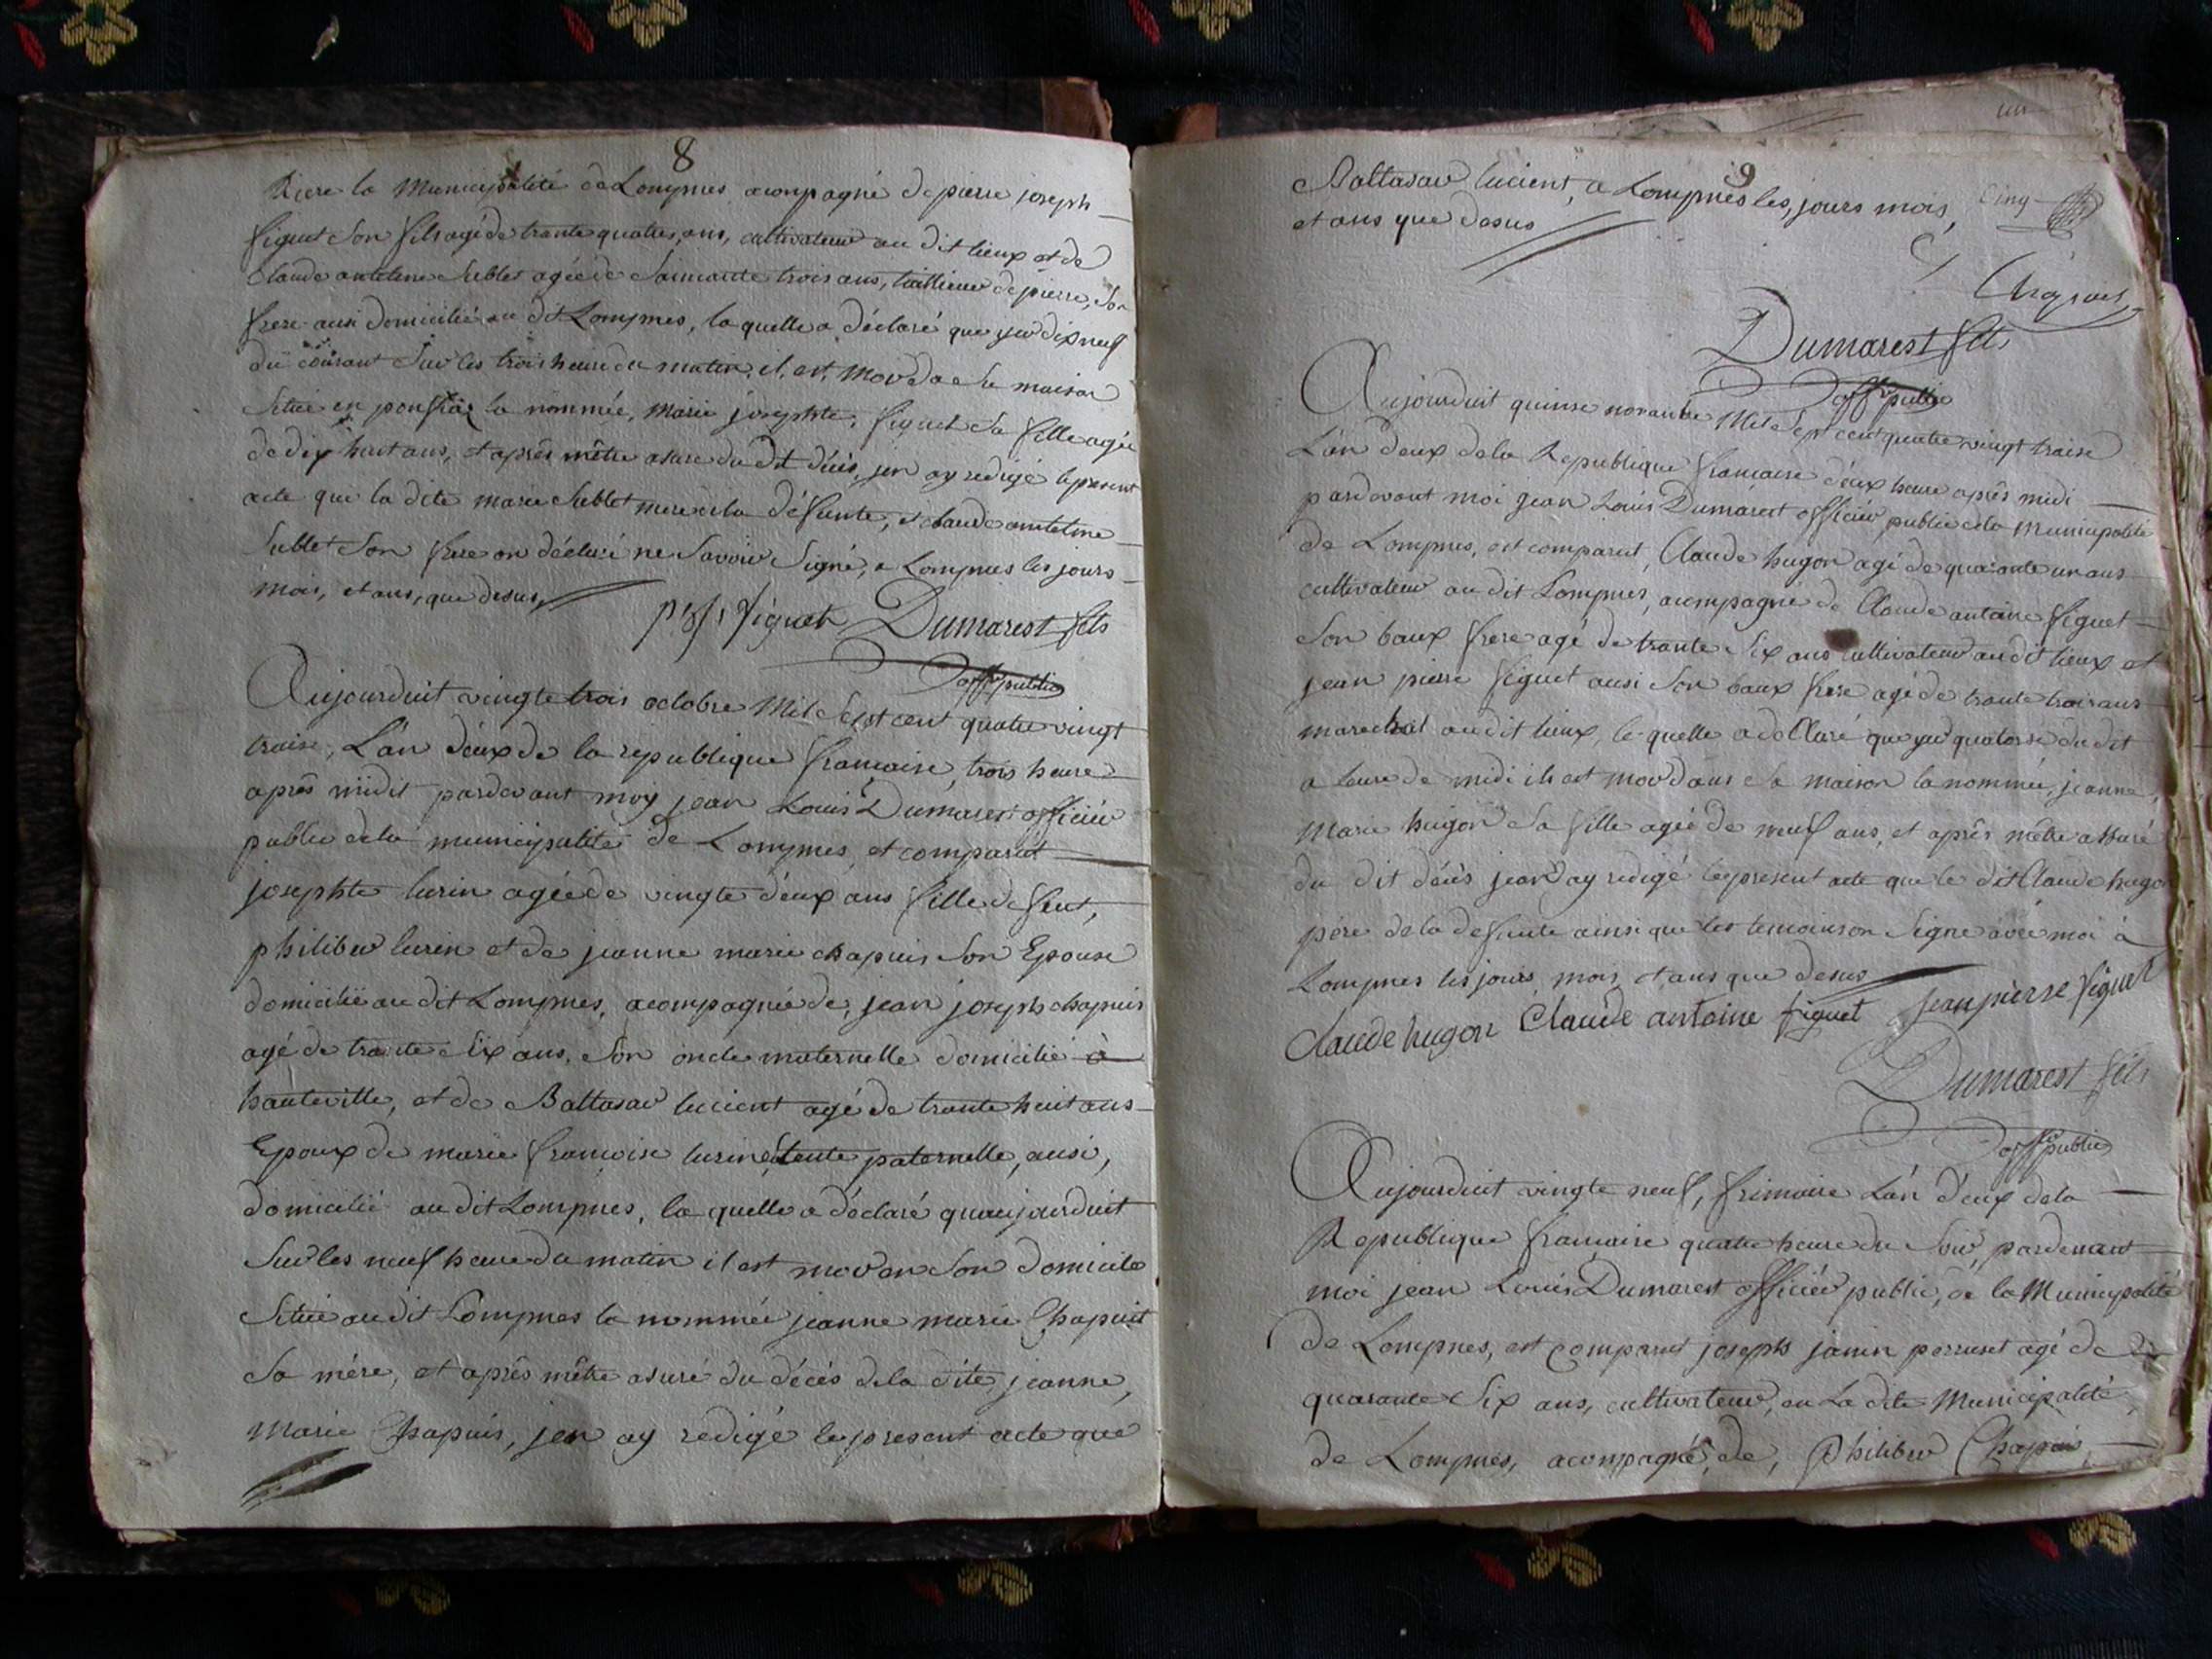 8
Riere la Municipalité de Lompnes acompagné de pierre joseph
figuet son fils agé de trante quatres ans, cultivateur au dit lieux et de
Claude anteleme Sublet agée de Soimante trois ans, taillieur de pierre, Son
frere ausi domicilié au dit Lompnes, la quelle a déclaré que yer dixneuf
du courant Sur les trois heure du matin, il, est, mor da sa maison
Situé en la nommée, Marie josephte, figuet Sa fille agée
de dix huit ans, et aprês mêtre asure du dit décès, jen ay redigé le present
acte que la dite marie Sublet mere de la défunte, et claude anteleme
Sublet Son frere on déclaré ne Savoir Signé, a Lompnes les jours
mois, et ans, que desus,
p. j. figuet Dumarest fils
offer public
Aujourduit vingte trois octobre Mil Sept cent quatre vingt
traise, L'an déux de la republique francaise, trois heure
aprês midit pardevant moy jean Louis Dumarest officiér
public de la municipalité de Lompnes, et comparut
josephte lurin agée de vingte déux ans fille de feut,
philiber lurin et de jeanne marie chapuis Son Epouse
domicilié au dit Lompnes, acompagnée de, jean joseph chapuis
agé de trante Six ans, Son oncle maternelle domicilié à
hauteville, et de Baltasar lucient agé de trante huit ans
Epoux de marie francoise lurine, tente paternelle, ausi,
domicilié au dit Lompnes, la quelle a déclaré quaujourduit
Sur les neuf heure du matin il est mor en Son domicile
Situé au dit Lompnes la nommée jeanne marie Chapuit
Sa mére, et aprês mêtre asuré du décés de la dite jeanne,
Marie Chapuis, jen ay redigé le present acte que
9
Baltasar lucient, a Lompnes les, jours mois,
et ans que desus
Cinq
Dumarest fils
offer public
Aujourduit quinse novanbre Mil Sept cent quatre vingt traise
L'an deux de la Republique francaise déux heure aprês midi
pardevant moi jean Louis Dumarest officiér public de la Municipalité
de Lompnes, est comparut, Claude hugon agé de quarante un ans
cultivateur au dit Lompnes, acompagné de Claude antoine figuet
Son baux frere agé de trante Six ans cultivateur au dit lieux et
jean pierre figuet ausi Son baux frere agé de trante trois ans
marechal au dit lieux, le quelle a decllaré que yer quatorse du dit
a leure de midi ils est mor dans Sa maison la nommée, jeanne,
Marie hugon Sa fille agée de neuf ans, et aprês mêtre assuré
du dit décès jean ay redigé le present acte que le dit Claude hugon
pére de la defunte ainsi que les temoins on Signe avec moi à
Lompnes les jours, mois, et ans que desus
Claude hugon Claude antoine figuet jean pierre figuet
Dumarest fils
offer public
Aujourduit vingte neuf, frimaire L'an déux de la
Republique francaise quatre heure du Soir, pardevant
moi jean Louis Dumarest officiér public, de la Municipalité
de Lompnes, est Comparut joseph janin perruset agé de
quarante Six ans, cultivateur, en La dite Municipalité
de Lompnes, acompagné, de, Philiber Chapuis,